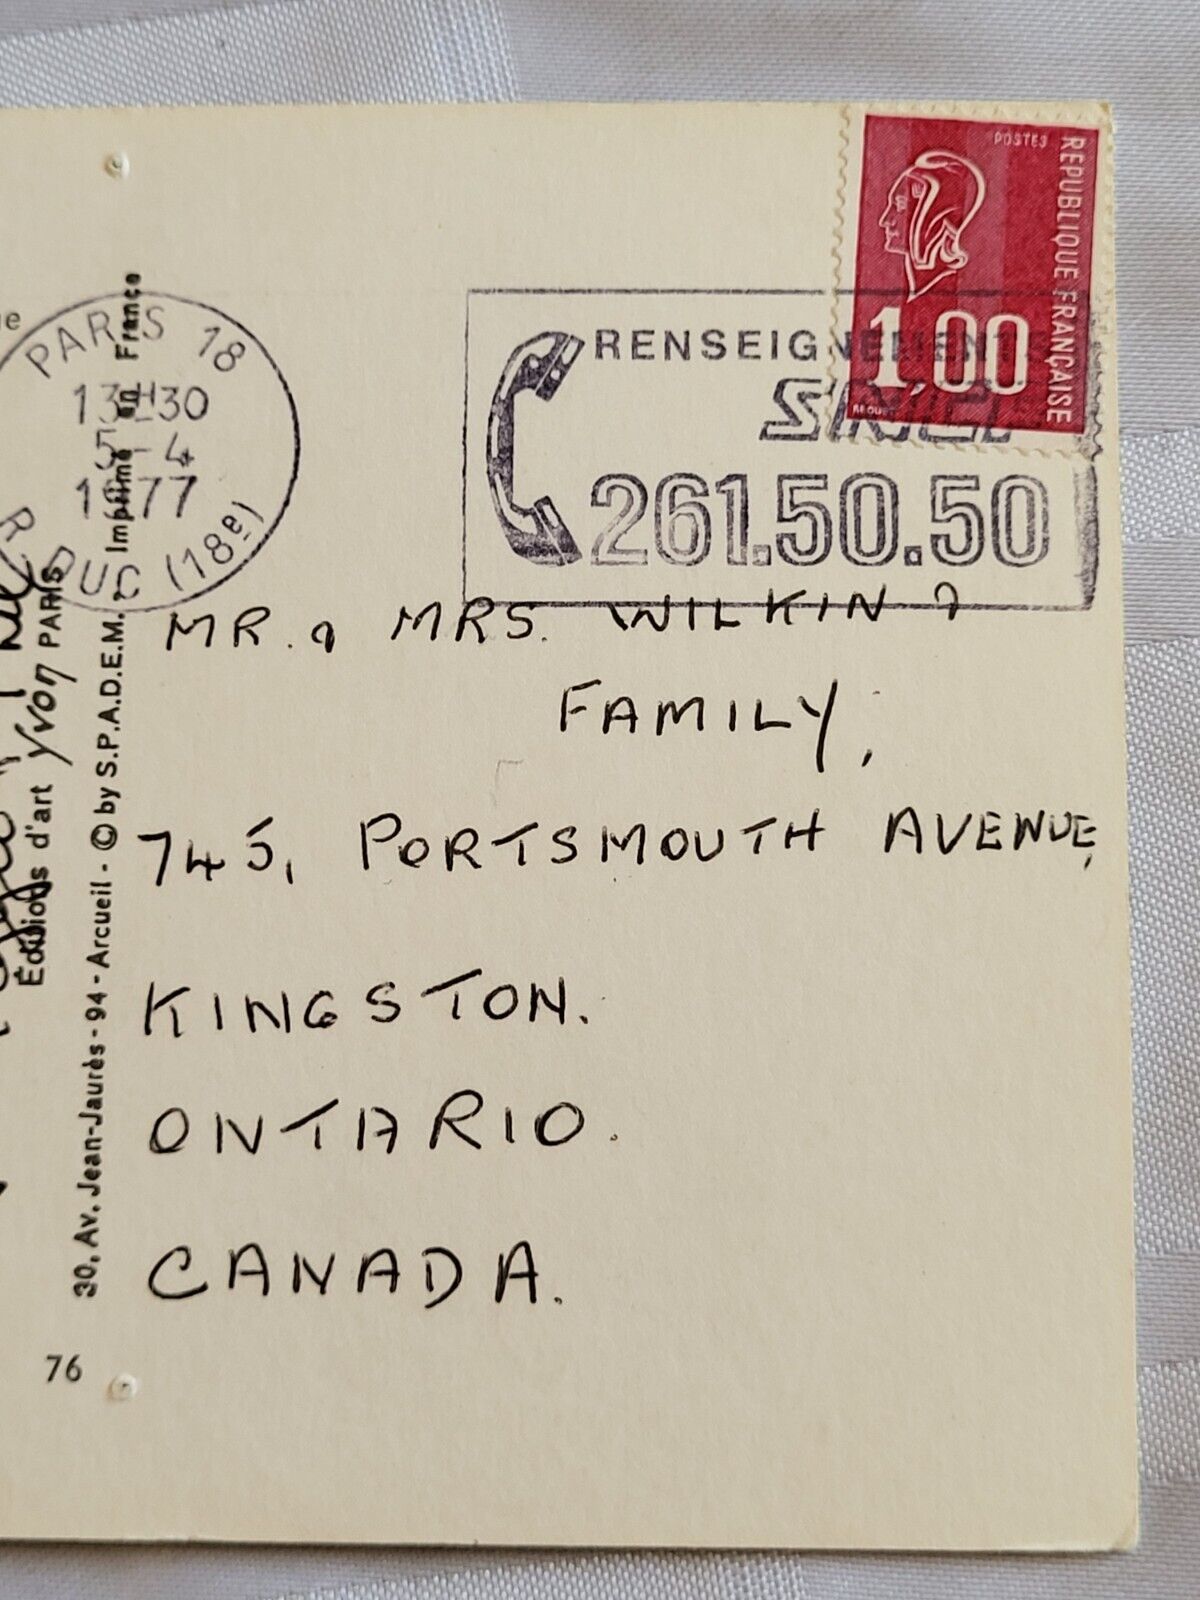 POSTES
REPUBLIQUE FRANÇAISE
1,00
PARIS 18
13H30
5-4
1977
R DUC (18e)
RENSEIGNEMENTS
SNCF
261.50.50
MR. & MRS. WILKIN &
FAMILY,
745, PORTSMOUTH AVENUE,
KINGSTON.
ONTARIO.
CANADA.
Éditions d'art Yvon PARIS
30, Av. Jean-Jaurès - 94 - Arcueil - © by S.P.A.D.E.M. Imprimé en France
76